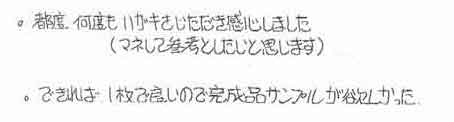 。都度、何度もハガキをいただき感心しました
(マネして参考としたいと思します)
。できれば1枚で良いので完成品サンプルが欲しかった